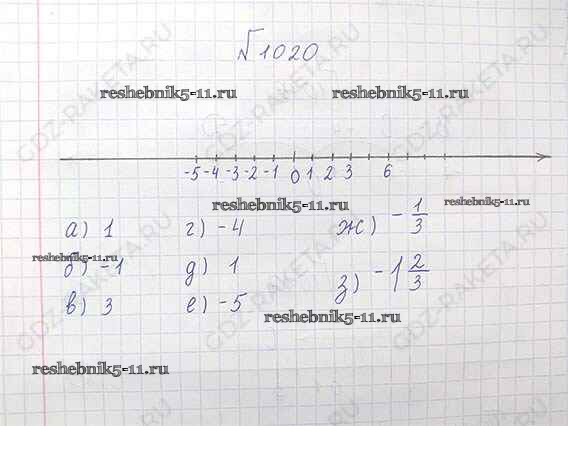 №1020
reshebnik5-11.ru reshebnik5-11.ru
-5 -4 -3 -2 -1 0 1 2 3 6
reshebnik5-11.ru reshebnik5-11.ru
а) 1 г) -4 ж) -1/3
reshebnik5-11.ru
б) -1 д) 1 з) -1 2/3
в) 3 е) -5
reshebnik5-11.ru
reshebnik5-11.ru
GDZ-RAKETA.RU